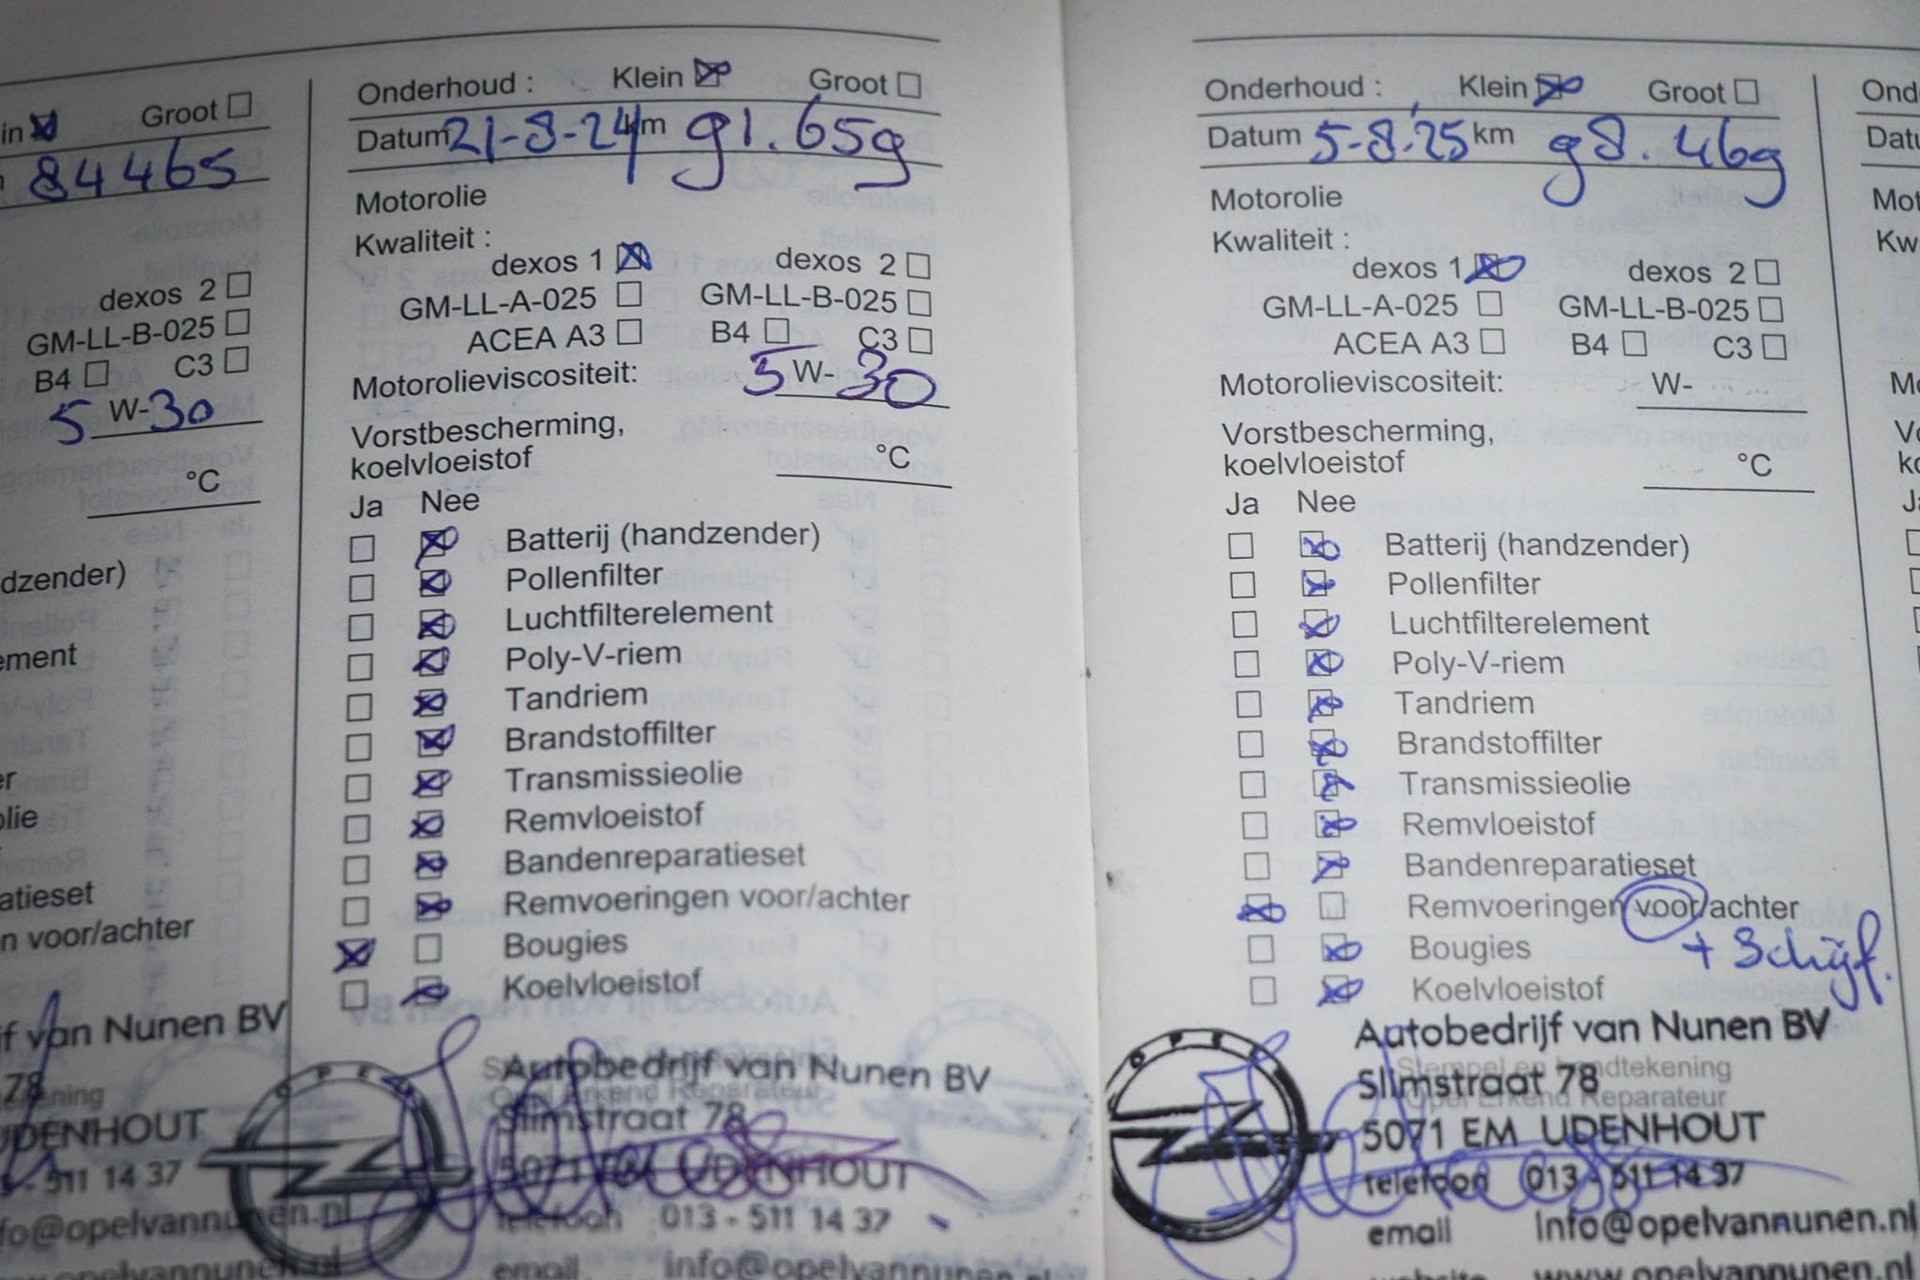 in Groot
84465
dexos 2
GM-LL-B-025
B4 C3
5 W-30
°C
dzender)
ement
olie
atieset
n voor/achter
jf van Nunen BV
78
UDENHOUT
511 14 37
fo@opelvannunen.nl
Onderhoud : Klein Groot
Datum 21-8-24 km 91.659
Motorolie
Kwaliteit :
dexos 1 dexos 2
GM-LL-A-025 GM-LL-B-025
ACEA A3 B4 C3
Motorolieviscositeit: 5 W-30
Vorstbescherming,
koelvloeistof °C
Ja Nee
Batterij (handzender)
Pollenfilter
Luchtfilterelement
Poly-V-riem
Tandriem
Brandstoffilter
Transmissieolie
Remvloeistof
Bandenreparatieset
Remvoeringen voor/achter
Bougies
Koelvloeistof
OPEL
Autobedrijf van Nunen BV
Slimstraat 78
5071 EM UDENHOUT
telefoon 013 - 511 14 37
email info@opelvannunen.nl
Onderhoud : Klein Groot
Datum 5-8-'25 km 98.469
Motorolie
Kwaliteit :
dexos 1 dexos 2
GM-LL-A-025 GM-LL-B-025
ACEA A3 B4 C3
Motorolieviscositeit: W-
Vorstbescherming,
koelvloeistof °C
Ja Nee
Batterij (handzender)
Pollenfilter
Luchtfilterelement
Poly-V-riem
Tandriem
Brandstoffilter
Transmissieolie
Remvloeistof
Bandenreparatieset
Remvoeringen voor/achter
+ Schijf.
Bougies
Koelvloeistof
OPEL
Autobedrijf van Nunen BV
Stempel en handtekening
Slimstraat 78
Opel Erkend Reparateur
5071 EM UDENHOUT
telefoon 013 - 511 14 37
email info@opelvannunen.nl
www.opelvannunen.nl
Ond
Datu
Mot
Kw